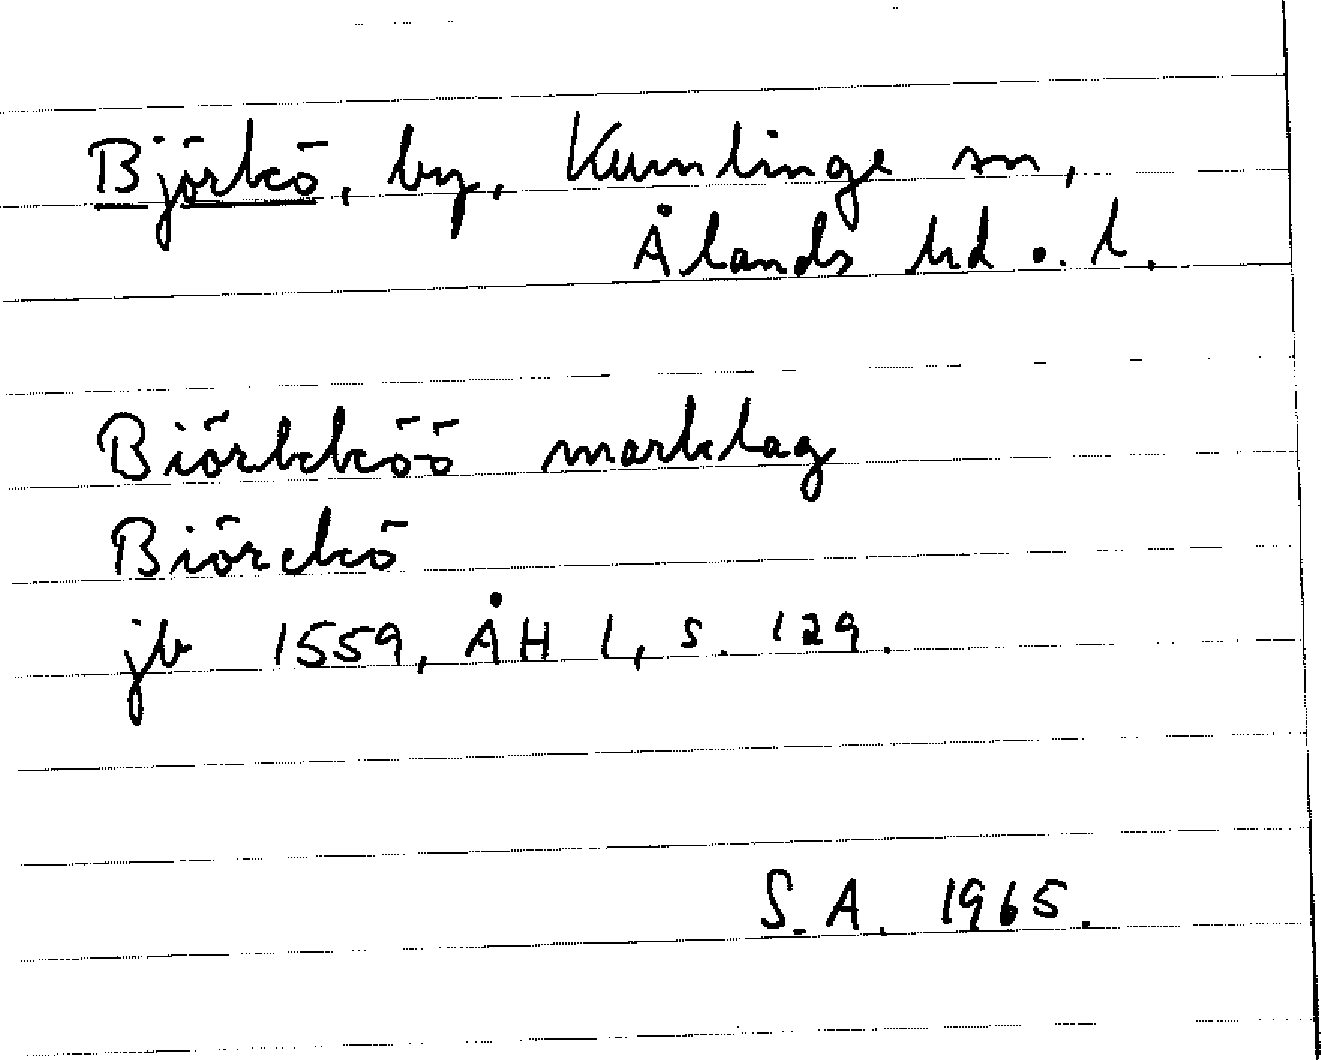 Björkö, by, Kumlinge sn,
Ålands hd o. l.
Biörkköö marklag
Biörckö
jb 1559, ÅH I, s. 129.
S.A. 1965.